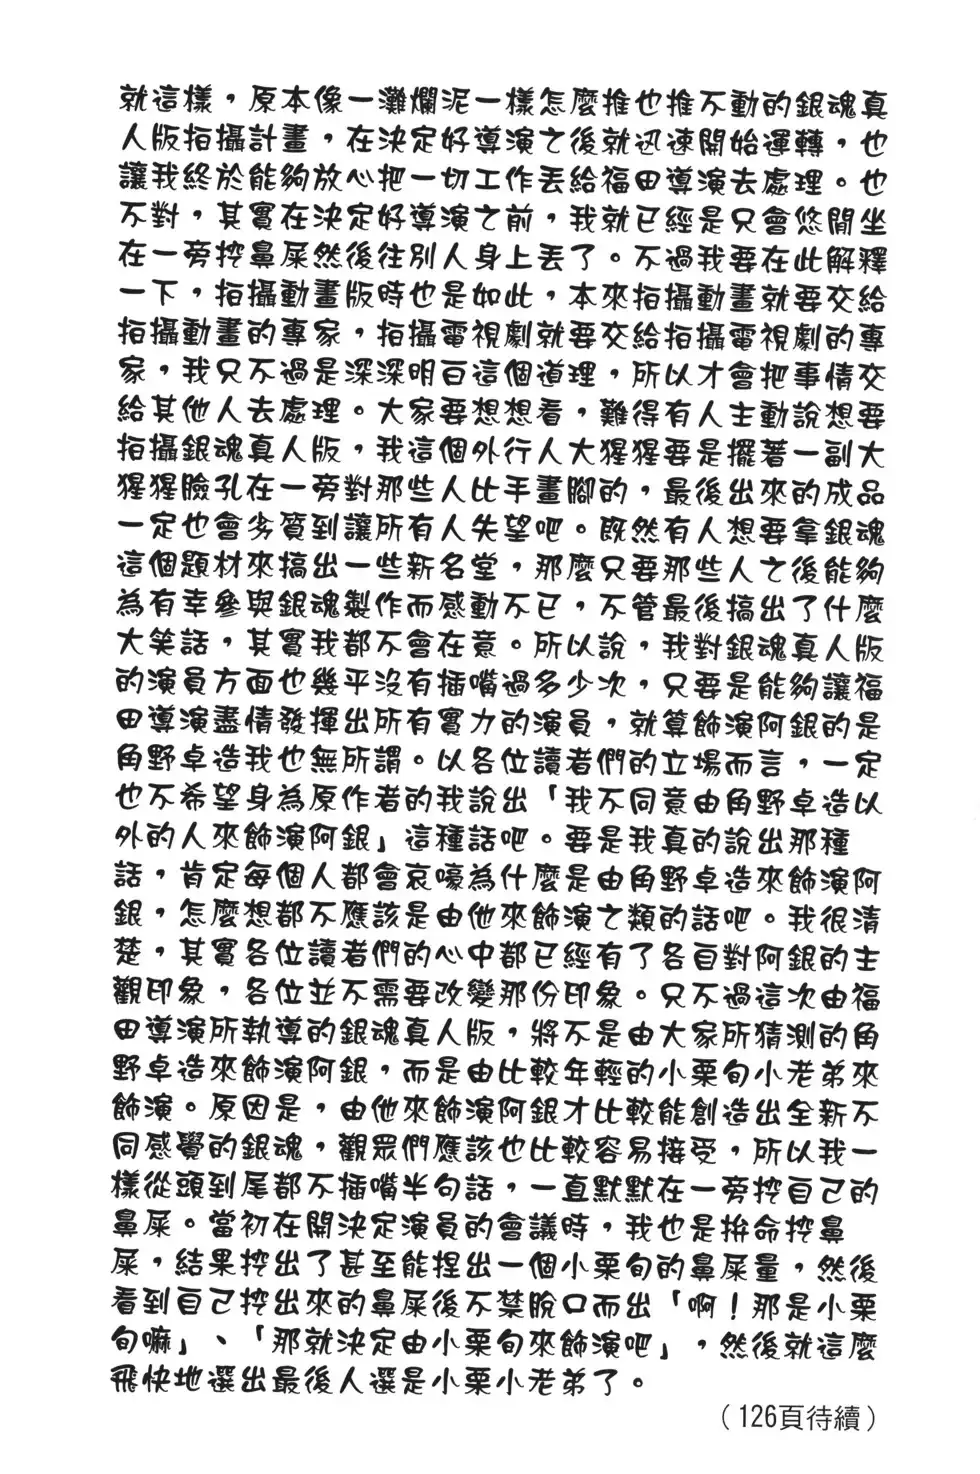 就這樣，原本像一灘爛泥一樣怎麼推也推不動的銀魂真
人版拍攝計畫，在決定好導演之後就迅速開始運轉，也
讓我終於能夠放心把一切工作丟給福田導演去處理。也
不對，其實在決定好導演之前，我就已經是只會悠閒坐
在一旁挖鼻屎然後往別人身上丟了。不過我要在此解釋
一下，拍攝動畫版時也是如此，本來拍攝動畫就要交給
拍攝動畫的專家，拍攝電視劇就要交給拍攝電視劇的專
家，我只不過是深深明白這個道理，所以才會把事情交
給其他人去處理。大家要想想看，難得有人主動說想要
拍攝銀魂真人版，我這個外行人大猩猩要是擺著一副大
猩猩臉孔在一旁對那些人比手畫腳的，最後出來的成品
一定也會劣質到讓所有人失望吧。既然有人想要拿銀魂
這個題材來搞出一些新名堂，那麼只要那些人之後能夠
為有幸參與銀魂製作而感動不已，不管最後搞出了什麼
大笑話，其實我都不會在意。所以說，我對銀魂真人版
的演員方面也幾乎沒有插嘴過多少次，只要是能夠讓福
田導演盡情發揮出所有實力的演員，就算飾演阿銀的是
角野卓造我也無所謂。以各位讀者們的立場而言，一定
也不希望身為原作者的我說出「我不同意由角野卓造以
外的人來飾演阿銀」這種話吧。要是我真的說出那種
話，肯定每個人都會哀嚎為什麼是由角野卓造來飾演阿
銀，怎麼想都不應該是由他來飾演之類的話吧。我很清
楚，其實各位讀者們的心中都已經有了各自對阿銀的主
觀印象，各位並不需要改變那份印象。只不過這次由福
田導演所執導的銀魂真人版，將不是由大家所猜測的角
野卓造來飾演阿銀，而是由比較年輕的小栗旬小老弟來
飾演。原因是，由他來飾演阿銀才比較能創造出全新不
同感覺的銀魂，觀眾們應該也比較容易接受，所以我一
樣從頭到尾都不插嘴半句話，一直默默在一旁挖自己的
鼻屎。當初在開決定演員的會議時，我也是拚命挖鼻
屎，結果挖出了甚至能捏出一個小栗旬的鼻屎量，然後
看到自己挖出來的鼻屎後不禁脫口而出「啊！那是小栗
旬嘛」、「那就決定由小栗旬來飾演吧」，然後就這麼
飛快地選出最後人選是小栗小老弟了。
（126頁待續）